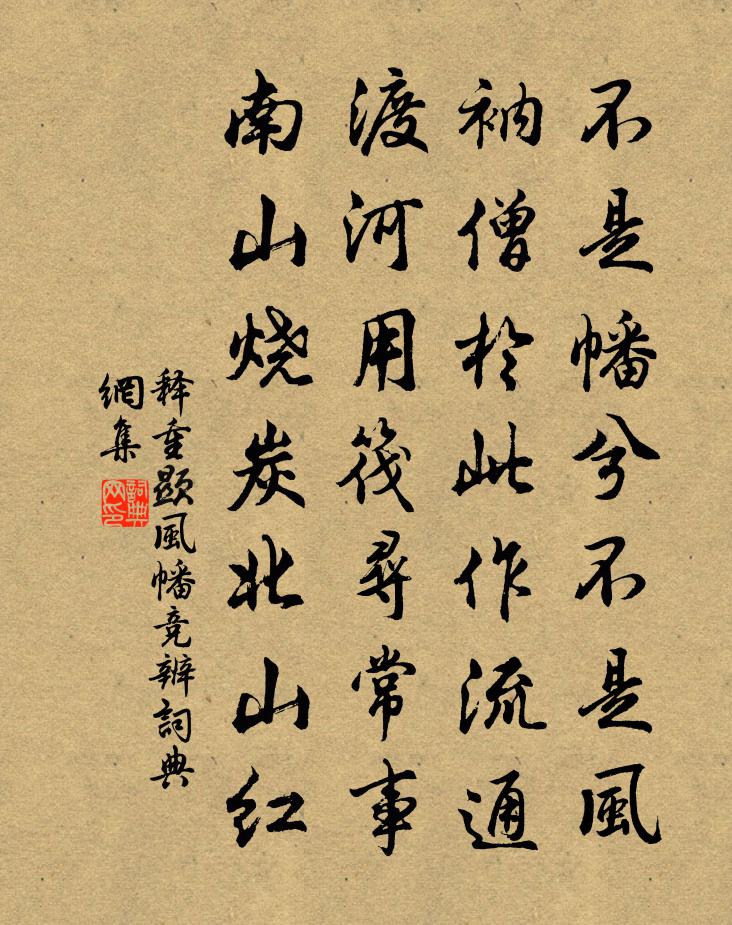 不是幡兮不是風
衲僧於此作流通
渡河用筏尋常事
南山燒炭北山红
释重顯風幡竞辨詞典
網集
詞典網印